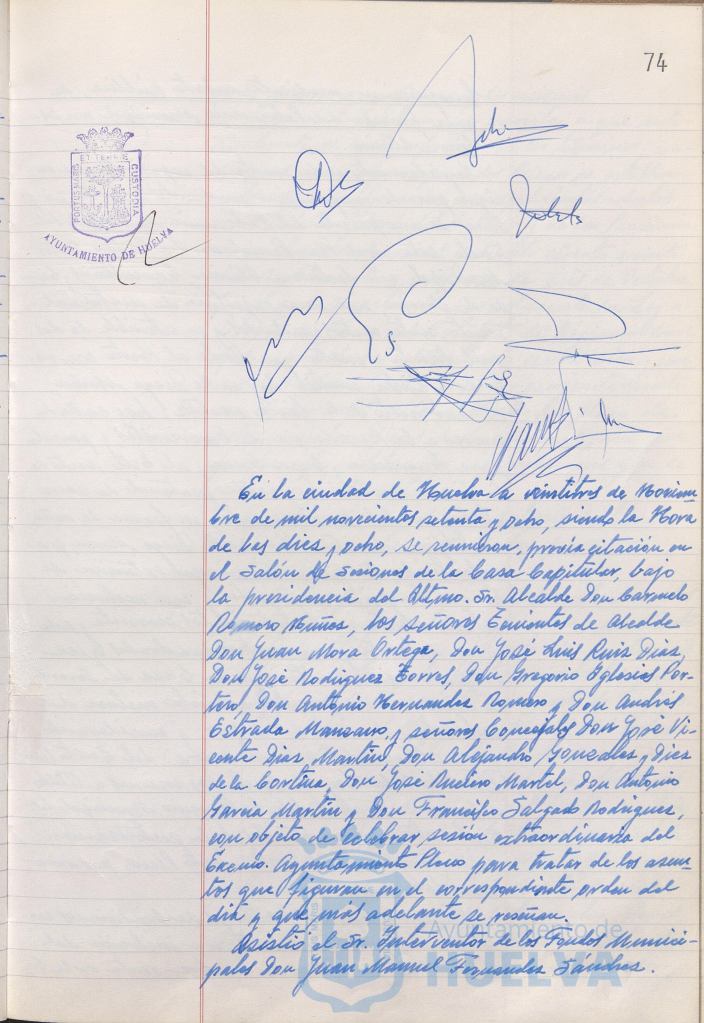 74
PORTUS MARIS
ET TERRE
CUSTODIA
AYUNTAMIENTO DE HUELVA
En la ciudad de Huelva a veintitres de Noviem-
bre de mil novecientos setenta y ocho, siendo la hora
de las diez y ocho, se reunieron, previa citación en
el Salón de Sesiones de la Casa Capitular, bajo
la presidencia del Iltmo. Sr. Alcalde Don Carmelo
Romero Núñez, los señores Tenientes de Alcalde
Don Juan Mora Ortega, Don José Luis Ruiz Diaz,
Don José Rodriguez Torres, Don Gregorio Iglesias Por-
tero, Don Antonio Hernandez Romero y Don Andrés
Estrada Manzano, y señores Concejales Don José Vi-
cente Diaz Martin, Don Alejandro Gonzalez y Diez
de la Cortina, Don José Martel, Don Antonio
Garcia Martin y Don Francisco Salgado Rodriguez,
con objeto de celebrar sesión extraordinaria del
Excmo. Ayuntamiento Pleno para tratar de los asun-
tos que figuran en el correspondiente orden del
dia y que más adelante se reseñan.
Asistió el Sr. Interventor de los Fondos Munici-
pales Don Juan Manuel Fernandez Sández.
Ayuntamiento de
HUELVA